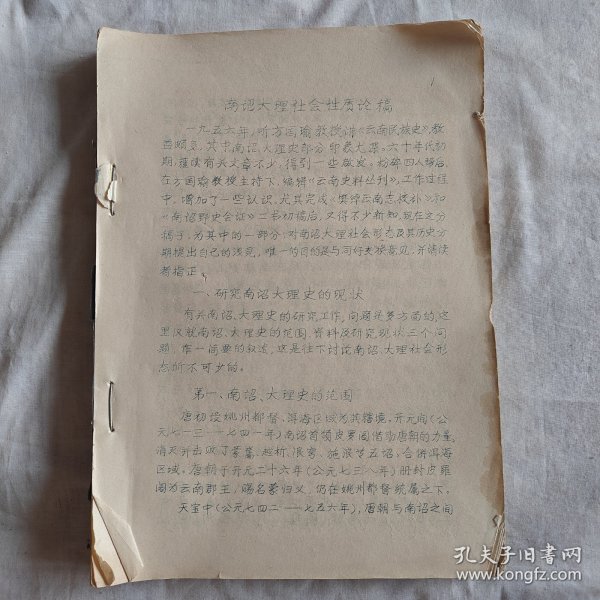 1
南诏大理社会性质论稿
一九五六年,听方国瑜教授讲《云南民族史》,教
益颇多,其中南诏、大理史部分印象尤深。六十年代初
期,谨读有关文章不少,得到一些启发。粉碎四人帮后
在方国瑜教授主持下,编辑《云南史料丛刊》,工作过程
中,增加了一些认识,尤其完成《樊绰云南志校补》和
《南诏野史会证》二书初稿后,又得不少新知。现在这分
稿子,为其中的一部分,对南诏大理社会形态及其历史分
期提出自己的浅见,唯一的目的是与同仔交换意见,并请读
者指正。
一、研究南诏大理史的现状
有关南诏、大理史的研究工作,问题是多方面的,这
里仅就南诏、大理史的范围、资料及研究现状三个问
题,作一简要的叙述,这是往下讨论南诏、大理社会形
态所不可少的。
第一、南诏、大理史的范围
唐初设姚州都督,洱海区域为其辖境。开元间(公
元七一三一七四一年)南诏首领皮罗阁借助唐朝的力量,
消灭并击败了蒙嶲、越析、浪穹、施浪等五诏,合併洱海
区域。唐朝于开元二十六年(公元七三八年)册封皮罗
阁为云南郡王,赐名蒙归义,仍在姚州都督统属之下。
天宝中(公元七四二一七五六年),唐朝与南诏之间
孔夫子旧书网
www.kongfz.com